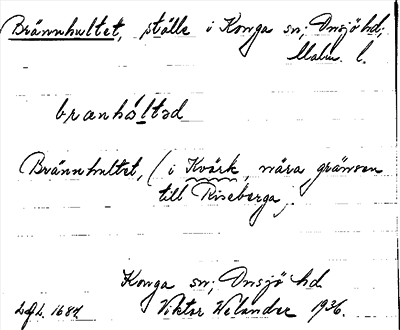 Brännhultet, ställe i Konga sn; Onsjö hd;
Malm. l.
brænhòltəd
Brännhultet, (i Kvärk, nära gränsen
till Riseberga,
Konga sn; Onsjö hd
Viktor Welander 1936.